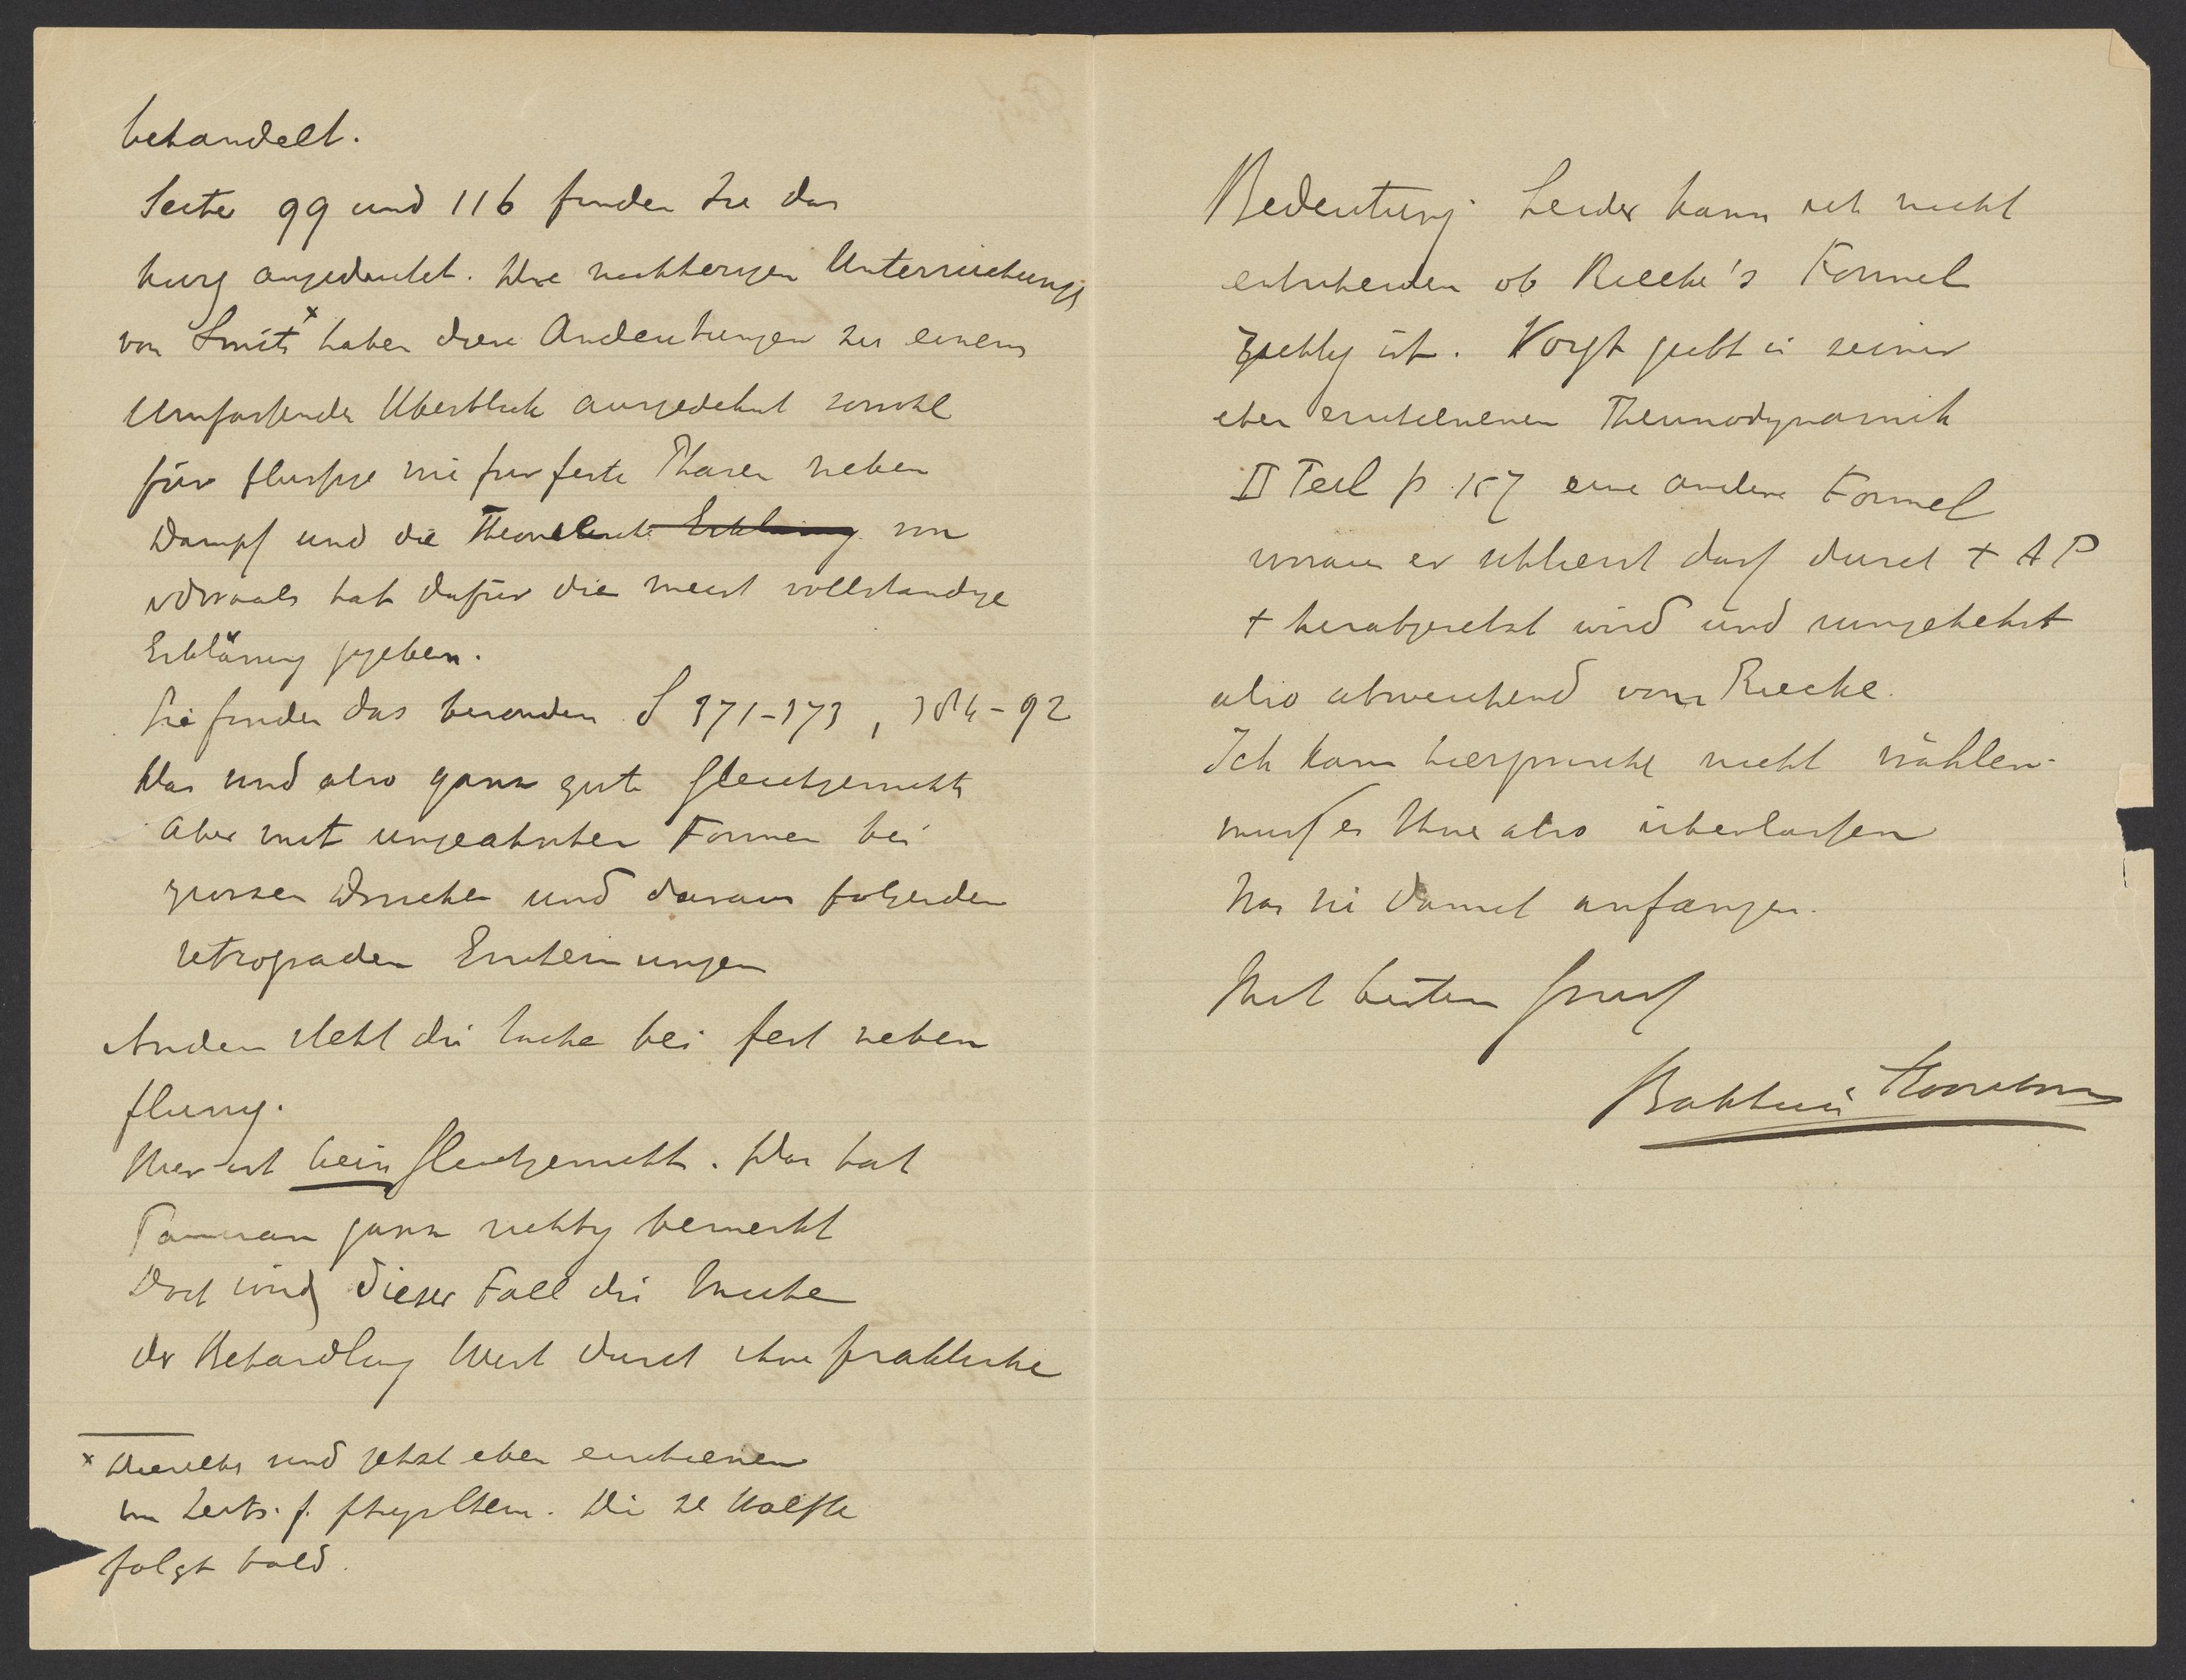 behandelt.
Seite 99 und 116 finden Sie das
kurz angedeutet. Die nachherigen Untersuchungen
von Smits x haben diese Andeutungen zu einem
Umfassenden Überblick ausgedehnt sowohl
für flussige wie fur feste Phasen neben
Dampf und die Theoretische Erklärung von
vdWaals hat dafür die meist vollstandige
Erklärung gegeben.
Sie finden das besonders S 371-373, 384-92
Das sind also ganz gute Gleichgewichte
Aber mit ungeahnten Formen bei
grossen Drucken und daraus folgenden
retrograden Erscheinungen
Anders steht die Sache bei fest neben
flussig.
Hier ist kein Gleichgewicht. Das hat
Tamman ganz richtig bemerkt
Doch wird dieser Fall die Mühe
der Behandlung Wert durch ihre praktische
x Dieselbe sind jetzt eben erschienen
im Zeits. f. phys Chem. Die 2e Hälfte
folgt bald.
Bedeutung. Leider kann ich nicht
entscheiden ob Riecke's Formel
richtig ist. Voigt giebt in seiner
eben erschienenen Thermodynamik
II Teil p 157 eine andere Formel
woraus er schliesst dass durch + Δ P
t herabgesetzt wird und umgekehrt
also abweichend von Riecke.
Ich kann hierzwischen nicht wählen.
muss es Ihne also überlassen
was sie damit anfangen.
Mit besten Gruss
Bakhuis Roozeboom